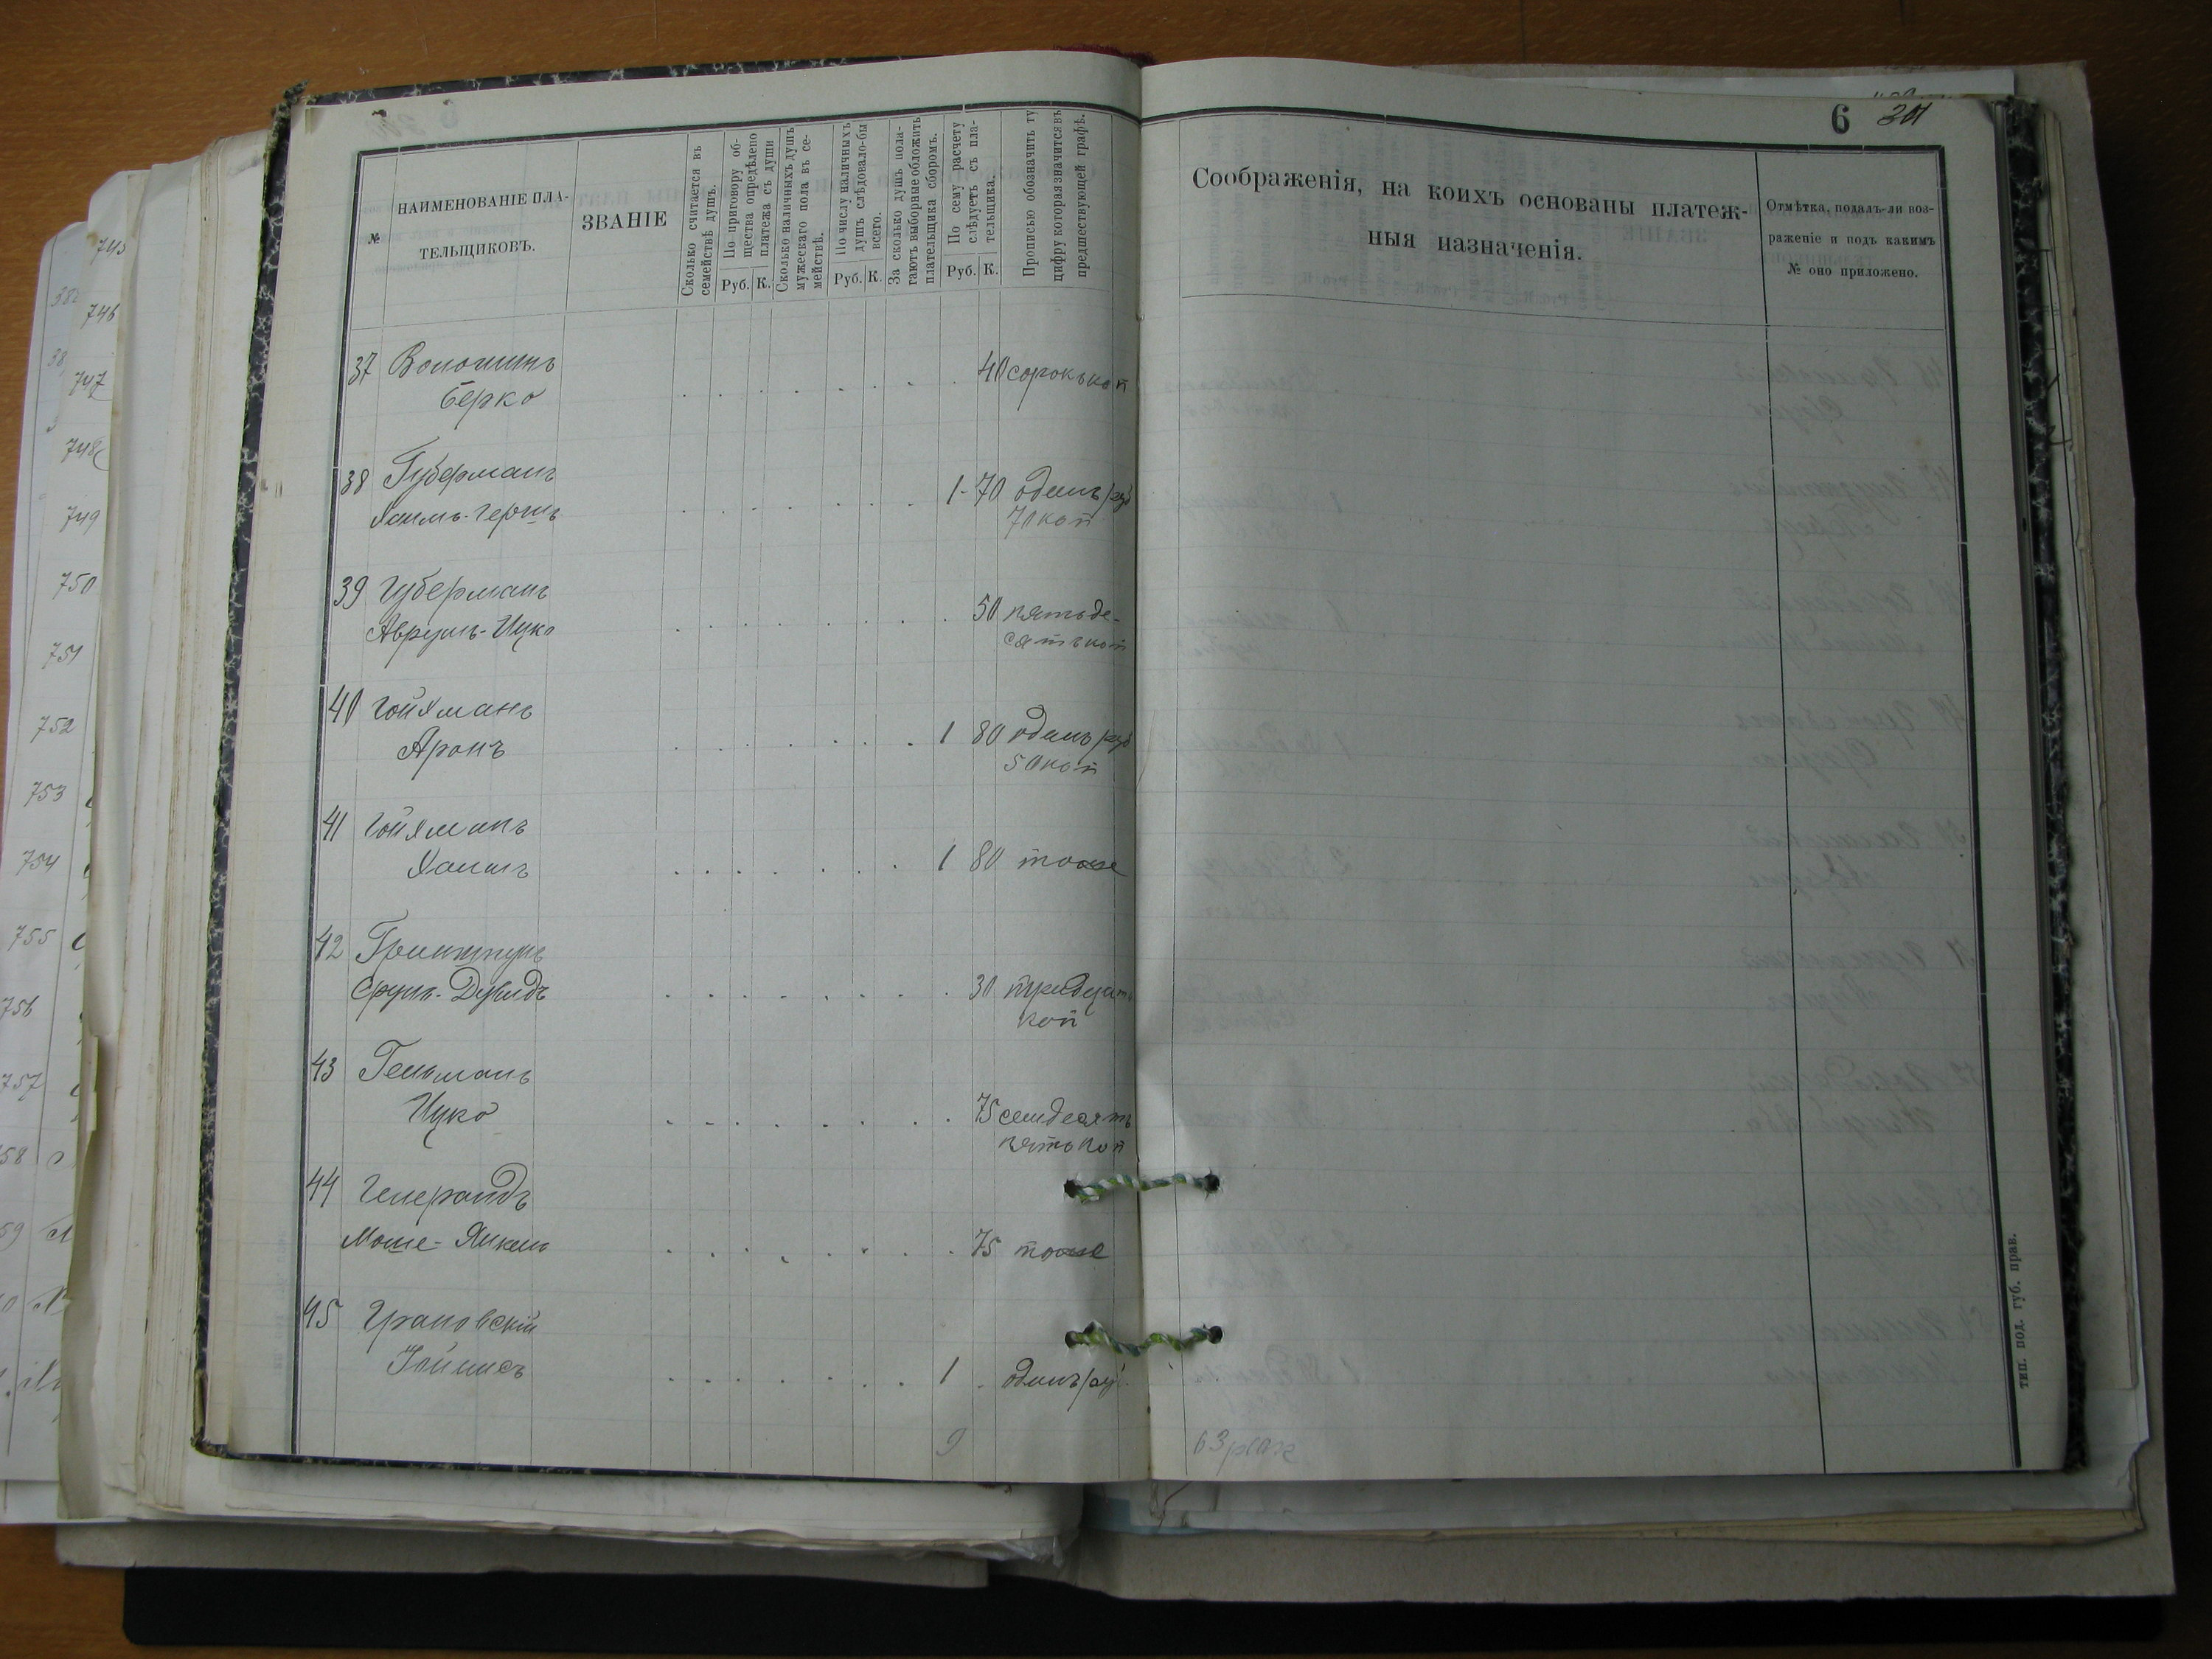 6 201
№
НАИМЕНОВАНІЕ ПЛА-
ТЕЛЬЩИКОВЪ.
ЗВАНІЕ
Сколько считается въ
семействѣ душъ.
По приговору об-
щества опредѣлено
платежа съ души
Руб. К.
Сколько наличныхъ душъ
мужескаго пола въ се-
мействѣ.
По числу наличныхъ
душъ слѣдовало-бы
всего.
Руб. К.
За сколько душъ пола-
гаютъ выборные обложить
плательщика сборомъ.
По сему расчету
слѣдуетъ съ пла-
тельщика.
Руб. К.
Прописью обозначить ту
цифру которая значится въ
предшествующей графѣ.
Соображенія, на коихъ основаны платеж-
ныя назначенія.
Отмѣтка, подалъ-ли воз-
раженіе и подъ какимъ
№ оно приложено.
37
Берко
40 сорокъ коп
38 Губерманъ
Хаимъ-Гершъ
1-70 одинъ руб
70 коп
39 Губерманъ
Аврумъ-Ицко
50 пятьде-
сятъ коп
40 Гойхманъ
Аронъ
1 80 одинъ руб
50 коп
41 Гойхманъ
Хаимъ
1 80 тоже
42
Срулъ-Дувидъ
30 тридцать
коп
43 Гельманъ
Ицко
75 семдесятъ
пять коп
44
Моше-Янкель
75 тоже
45 Грановскій
1 одинъ руб.
9
тип. под. губ. прав.
745
746
747
748
749
750
751
752
753
754
755
756
757
58
59